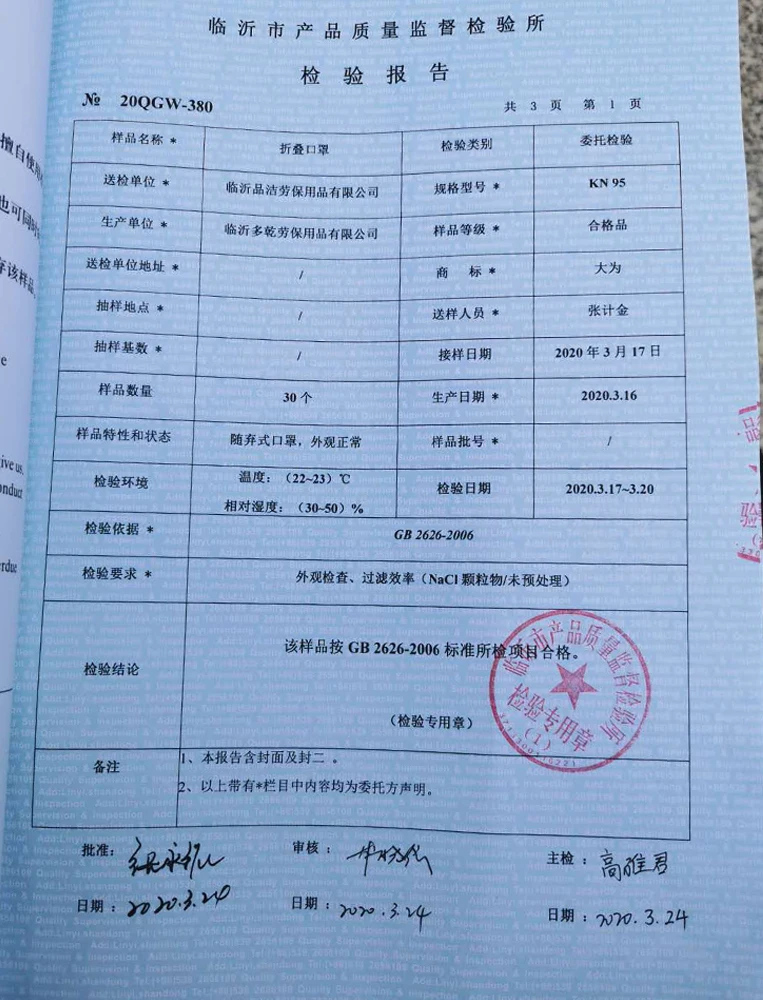 临沂市产品质量监督检验所
检验报告
№ 20QGW-380
共 3 页 第 1 页
样品名称 * 折叠口罩 检验类别 委托检验
送检单位 * 临沂品洁劳保用品有限公司 规格型号 * KN 95
生产单位 * 临沂多乾劳保用品有限公司 样品等级 * 合格品
送检单位地址 * / 商 标 * 大为
抽样地点 * / 送样人员 * 张计金
抽样基数 * / 接样日期 2020 年 3 月 17 日
样品数量 30 个 生产日期 * 2020.3.16
样品特性和状态 随弃式口罩，外观正常 样品批号 * /
检验环境 温度：（22~23）℃
相对湿度：（30~50）% 检验日期 2020.3.17~3.20
检验依据 * GB 2626-2006
检验要求 * 外观检查、过滤效率（NaCl 颗粒物/未预处理）
检验结论 该样品按 GB 2626-2006 标准所检项目合格。
（检验专用章）
临沂市产品质量监督检验所
检验专用章
（1）
备注 1、本报告含封面及封二 。
2、以上带有*栏目中内容均为委托方声明。
批准： 审核： 主检： 高雅君
日期：2020.3.24 日期：2020.3.24 日期：2020.3.24